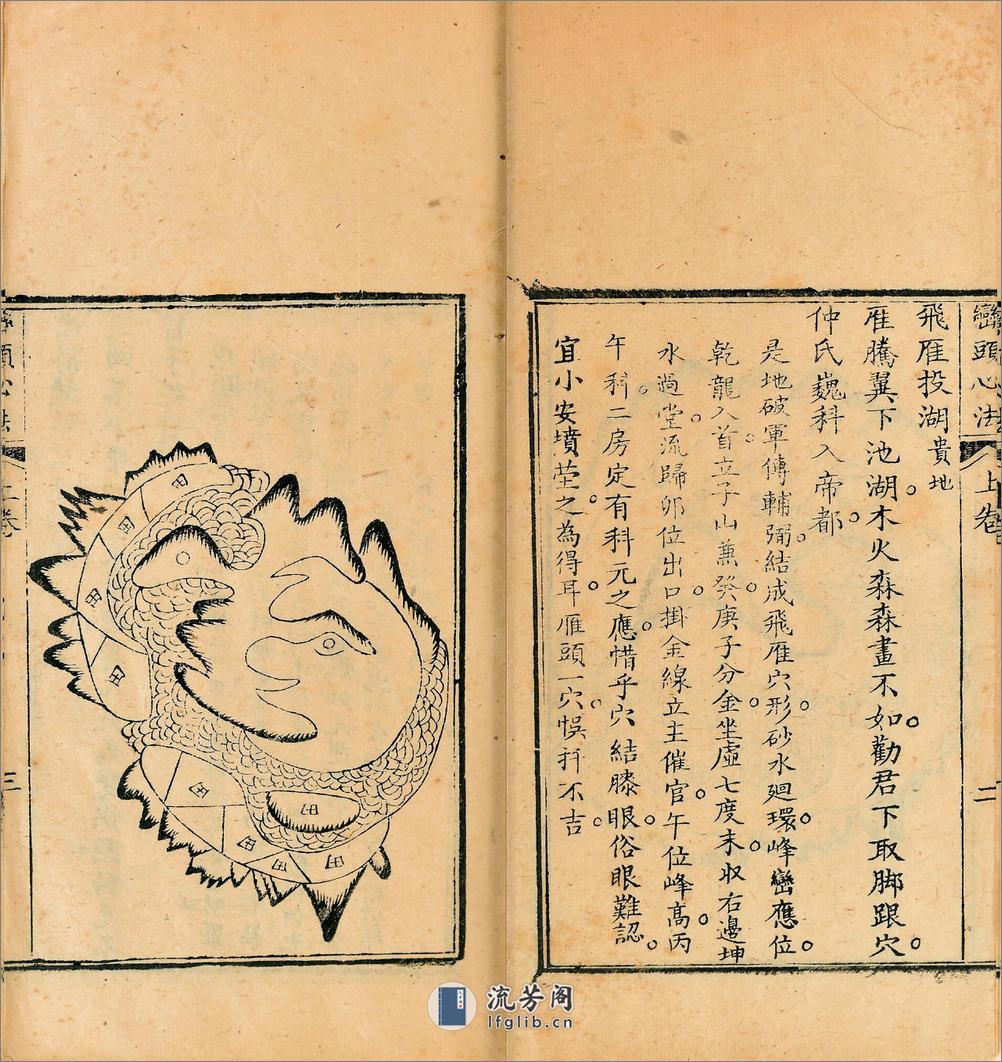 巒頭心法 上卷 二
飛雁投湖 貴地
雁騰翼下池湖木火森森畫不如勸君下取脚跟穴
仲氏巍科入帝都
是地破軍傳輔弼結成飛雁穴形砂水廻環峰巒應位
乾龍入首立子山兼癸庚子分金坐虛七度末収右邊坤
水過堂流歸卯位出口掛金線立主催官午位峰高丙
午科二房定有科元之應惜乎穴結膝眼俗眼難認
宜小安墳塋之為得耳雁頭一穴悞扦不吉
巒頭心法 上卷 三
田
田
田
田
田
田
田
田
田
流芳阁
lfglib.cn